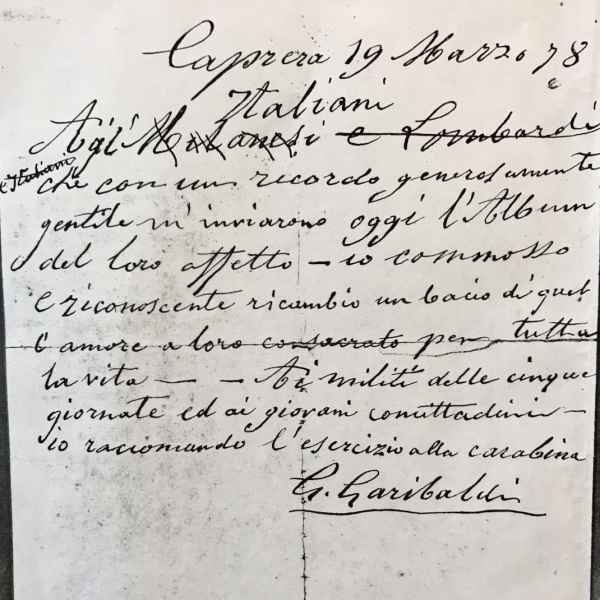 Caprera 19 Marzo 78
Italiani
Agl' Milanesi e Lombardi
e Italiani
che con un ricordo generosamente
gentile m'inviarono oggi l'Album
del loro affetto – io commosso
e riconoscente ricambio un bacio di quel
l'amore a loro consacrato per tutta
la vita – – Ai militi delle cinque
giornate ed ai giovani concittadini –
io raccomando l'esercizio alla carabina
G. Garibaldi